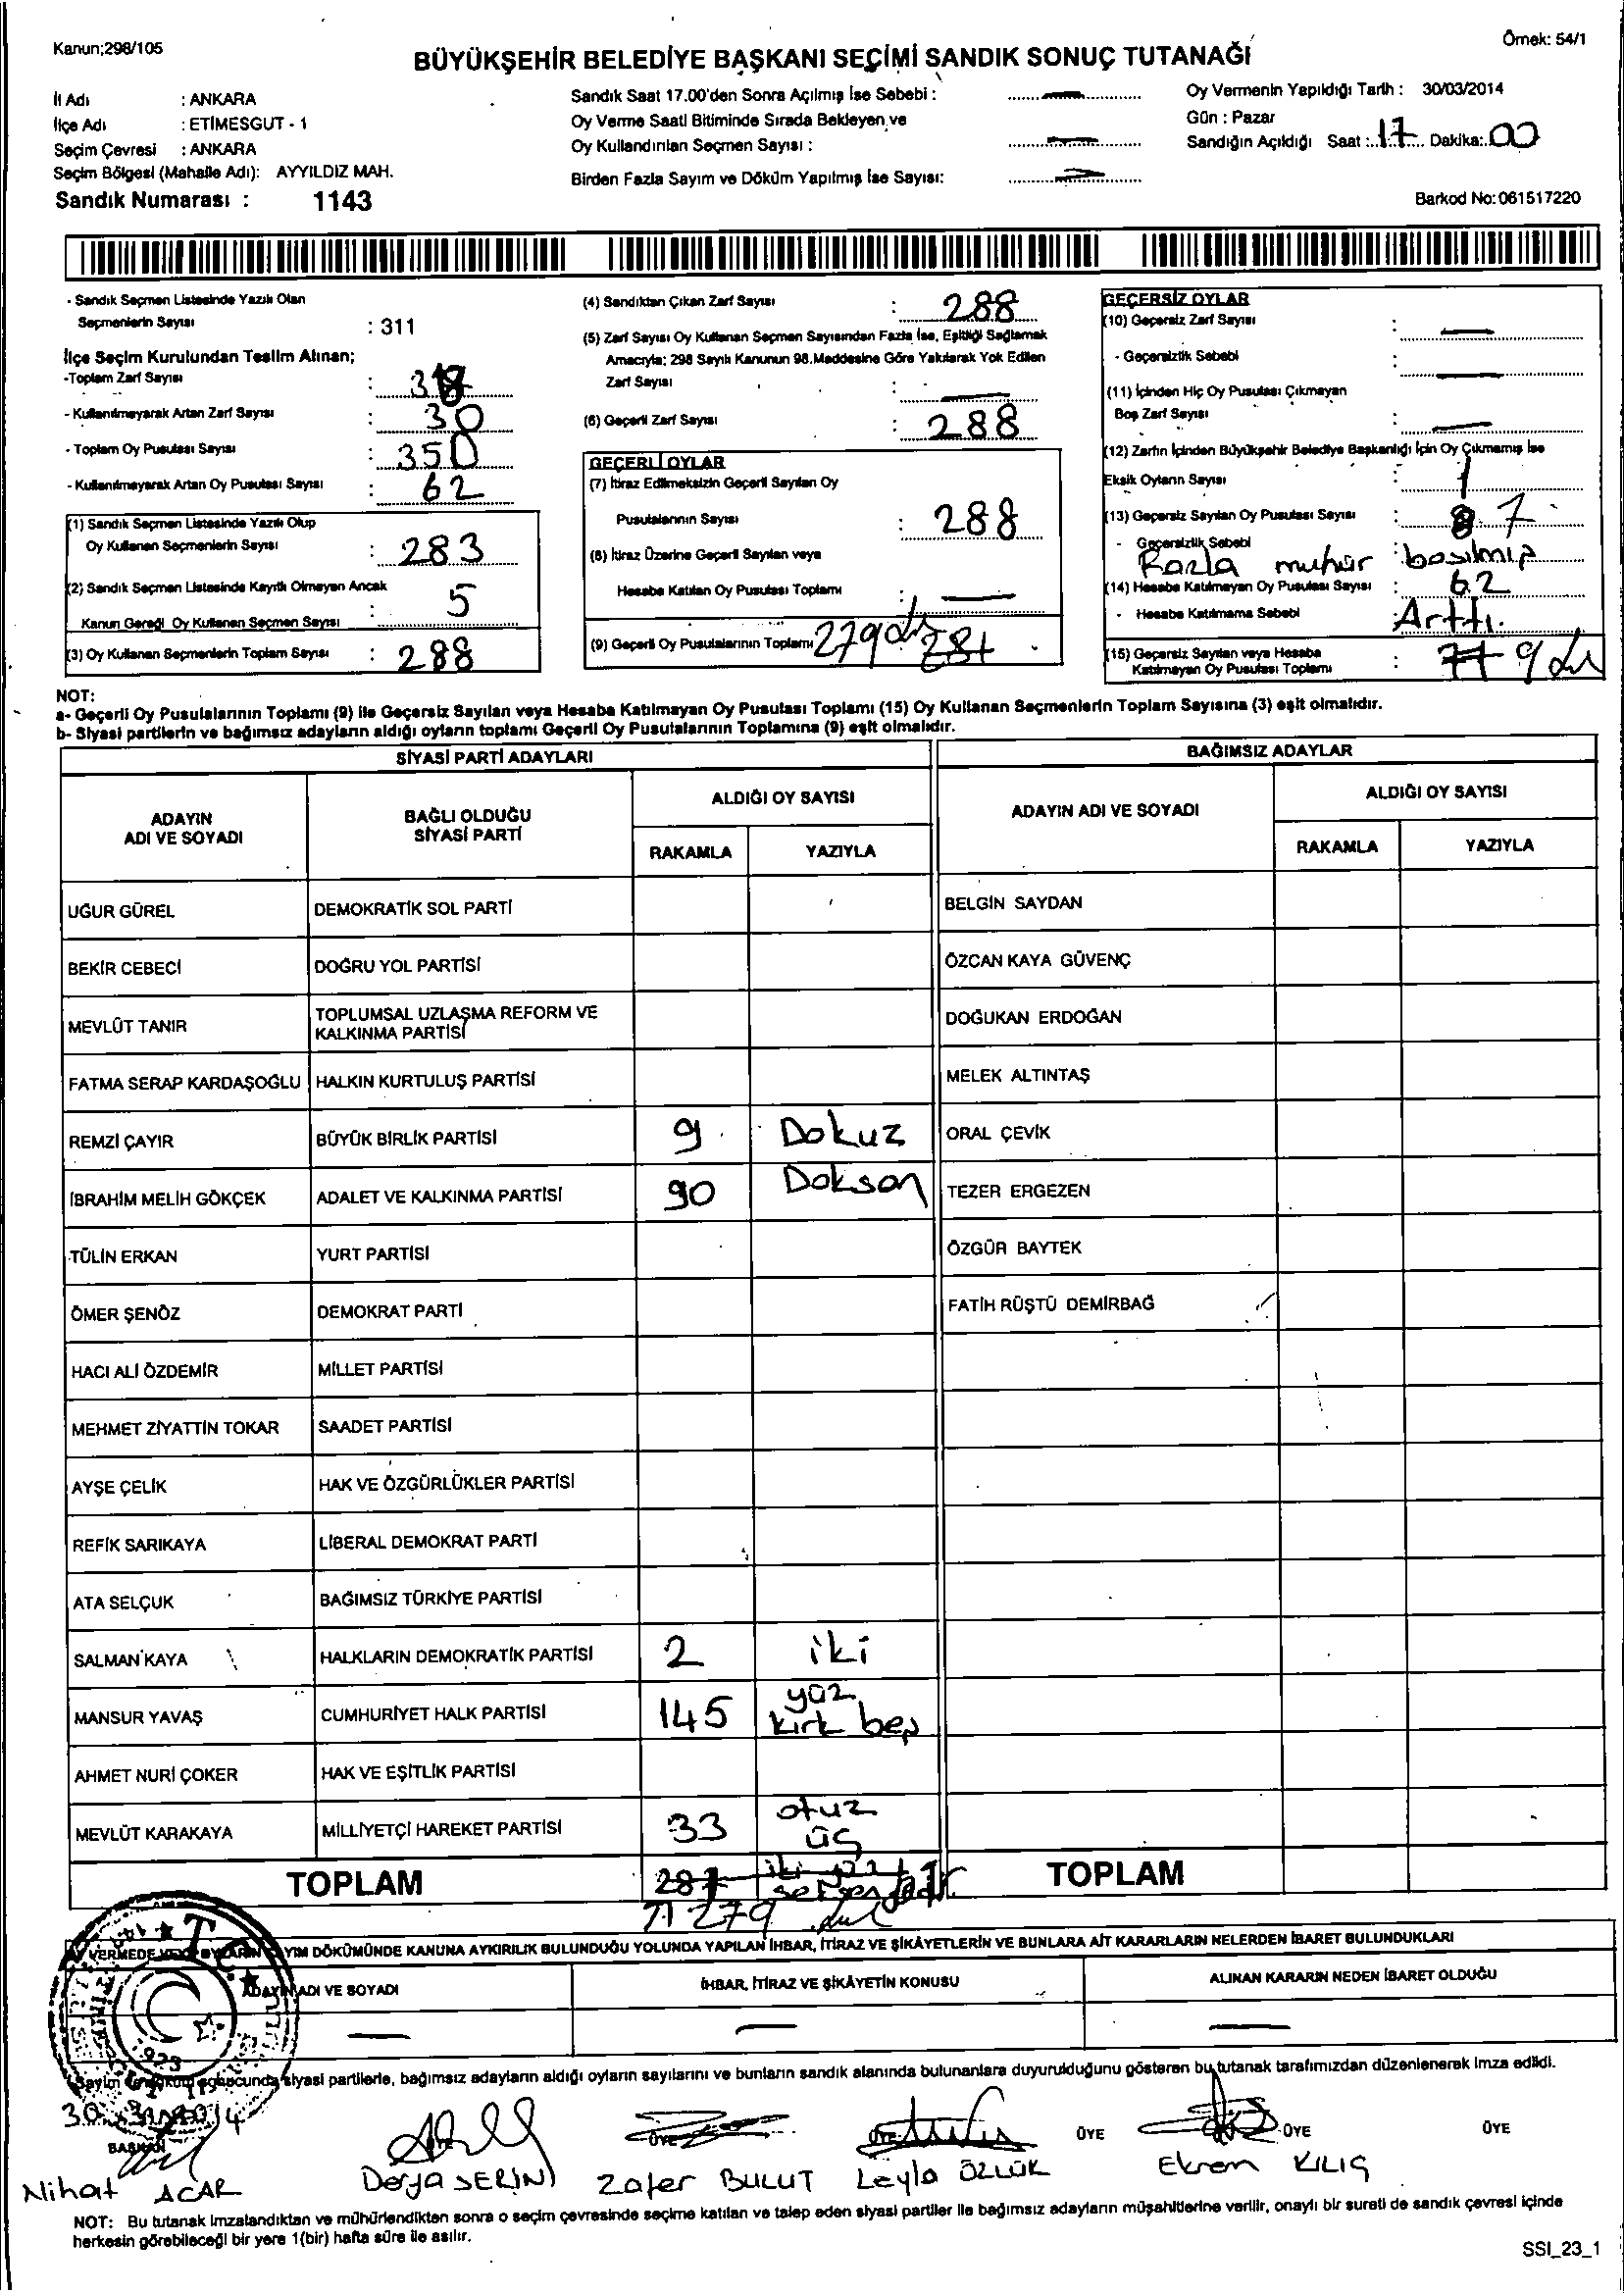 Kanun;298/105
Örnek: 54/1
BÜYÜKŞEHİR BELEDİYE BAŞKANI SEÇİMİ SANDIK SONUÇ TUTANAĞI
İl Adı : ANKARA
İlçe Adı : ETİMESGUT - 1
Seçim Çevresi : ANKARA
Seçim Bölgesi (Mahalle Adı): AYYILDIZ MAH.
Sandık Numarası : 1143
Sandık Saat 17.00'den Sonra Açılmış İse Sebebi : —
Oy Verme Saati Bitiminde Sırada Bekleyen ve
Oy Kullandırılan Seçmen Sayısı : —
Birden Fazla Sayım ve Döküm Yapılmış İse Sayısı: —
Oy Vermenin Yapıldığı Tarih : 30/03/2014
Gün : Pazar
Sandığın Açıldığı Saat : 17 Dakika: 00
Barkod No:061517220
- Sandık Seçmen Listesinde Yazılı Olan
Seçmenlerin Sayısı : 311
İlçe Seçim Kurulundan Teslim Alınan;
-Toplam Zarf Sayısı :
- Kullanılmayarak Artan Zarf Sayısı : 30
- Toplam Oy Pusulası Sayısı : 350
- Kullanılmayarak Artan Oy Pusulası Sayısı : 62
(1) Sandık Seçmen Listesinde Yazılı Olup
Oy Kullanan Seçmenlerin Sayısı : 283
(2) Sandık Seçmen Listesinde Kayıtlı Olmayan Ancak
Kanun Gereği Oy Kullanan Seçmen Sayısı : 5
(3) Oy Kullanan Seçmenlerin Toplam Sayısı : 288
(4) Sandıktan Çıkan Zarf Sayısı : 288
(5) Zarf Sayısı Oy Kullanan Seçmen Sayısından Fazla İse, Eşitliği Sağlamak
Amacıyla; 298 Sayılı Kanunun 98.Maddesine Göre Yakılarak Yok Edilen
Zarf Sayısı : —
(6) Geçerli Zarf Sayısı : 288
GEÇERLİ OYLAR
(7) İtiraz Edilmeksizin Geçerli Sayılan Oy
Pusulalarının Sayısı : 288
(8) İtiraz Üzerine Geçerli Sayılan veya
Hesaba Katılan Oy Pusulası Toplamı : —
(9) Geçerli Oy Pusulalarının Toplamı 279 281
GEÇERSİZ OYLAR
(10) Geçersiz Zarf Sayısı : —
- Geçersizlik Sebebi : —
(11) İçinden Hiç Oy Pusulası Çıkmayan
Boş Zarf Sayısı : —
(12) Zarfın İçinden Büyükşehir Belediye Başkanlığı İçin Oy Çıkmamış İse
Eksik Oyların Sayısı : 1
(13) Geçersiz Sayılan Oy Pusulası Sayısı : 8 7
- Geçersizlik Sebebi : Fazla muhür basılmış
(14) Hesaba Katılmayan Oy Pusulası Sayısı : 62
- Hesaba Katılmama Sebebi : Arttı.
(15) Geçersiz Sayılan veya Hesaba
Katılmayan Oy Pusulası Toplamı : 9
NOT:
a- Geçerli Oy Pusulalarının Toplamı (9) ile Geçersiz Sayılan veya Hesaba Katılmayan Oy Pusulası Toplamı (15) Oy Kullanan Seçmenlerin Toplam Sayısına (3) eşit olmalıdır.
b- Siyasi partilerin ve bağımsız adayların aldığı oyların toplamı Geçerli Oy Pusulalarının Toplamına (9) eşit olmalıdır.
SİYASİ PARTİ ADAYLARI
BAĞIMSIZ ADAYLAR
ADAYIN ADI VE SOYADI
BAĞLI OLDUĞU SİYASİ PARTİ
ALDIĞI OY SAYISI
RAKAMLA YAZIYLA
ADAYIN ADI VE SOYADI
ALDIĞI OY SAYISI
RAKAMLA YAZIYLA
UĞUR GÜREL DEMOKRATİK SOL PARTİ BELGİN SAYDAN
BEKİR CEBECİ DOĞRU YOL PARTİSİ ÖZCAN KAYA GÜVENÇ
MEVLÜT TANIR TOPLUMSAL UZLAŞMA REFORM VE KALKINMA PARTİSİ DOĞUKAN ERDOĞAN
FATMA SERAP KARDAŞOĞLU HALKIN KURTULUŞ PARTİSİ MELEK ALTINTAŞ
REMZİ ÇAYIR BÜYÜK BİRLİK PARTİSİ 9 Dokuz ORAL ÇEVİK
İBRAHİM MELİH GÖKÇEK ADALET VE KALKINMA PARTİSİ 90 Doksan TEZER ERGEZEN
TÜLİN ERKAN YURT PARTİSİ ÖZGÜR BAYTEK
ÖMER ŞENÖZ DEMOKRAT PARTİ FATİH RÜŞTÜ DEMİRBAĞ
HACI ALİ ÖZDEMİR MİLLET PARTİSİ
MEHMET ZİYATTİN TOKAR SAADET PARTİSİ
AYŞE ÇELİK HAK VE ÖZGÜRLÜKLER PARTİSİ
REFİK SARIKAYA LİBERAL DEMOKRAT PARTİ
ATA SELÇUK BAĞIMSIZ TÜRKİYE PARTİSİ
SALMAN KAYA HALKLARIN DEMOKRATİK PARTİSİ 2 iki
MANSUR YAVAŞ CUMHURİYET HALK PARTİSİ 145 yüz kırk beş
AHMET NURİ ÇOKER HAK VE EŞİTLİK PARTİSİ
MEVLÜT KARAKAYA MİLLİYETÇİ HAREKET PARTİSİ 33 otuz üç
TOPLAM 281 iki yüz seksen bir TOPLAM
279
OY VERMEDE VEYA OYLARIN SAYIM DÖKÜMÜNDE KANUNA AYKIRILIK BULUNDUĞU YOLUNDA YAPILAN İHBAR, İTİRAZ VE ŞİKÂYETLERİN VE BUNLARA AİT KARARLARIN NELERDEN İBARET BULUNDUKLARI
ADAYIN ADI VE SOYADI İHBAR, İTİRAZ VE ŞİKÂYETİN KONUSU ALINAN KARARIN NEDEN İBARET OLDUĞU
— — —
Sayım ve döküm sonucunda siyasi partilerle, bağımsız adayların aldığı oyların sayılarını ve bunların sandık alanında bulunanlara duyurulduğunu gösteren bu tutanak tarafımızdan düzenlenerek imza edildi.
BAŞKAN ÜYE ÜYE ÜYE ÜYE ÜYE ÜYE
Nihat ACAR Derya SERİN Zafer BULUT Leyla ÖZLÜK Ekrem KILIÇ
NOT: Bu tutanak imzalandıktan ve mühürlendikten sonra o seçim çevresinde seçime katılan ve talep eden siyasi partiler ile bağımsız adayların müşahitlerine verilir, onaylı bir sureti de sandık çevresi içinde
herkesin görebileceği bir yere 1(bir) hafta süre ile asılır.
SSI_23_1